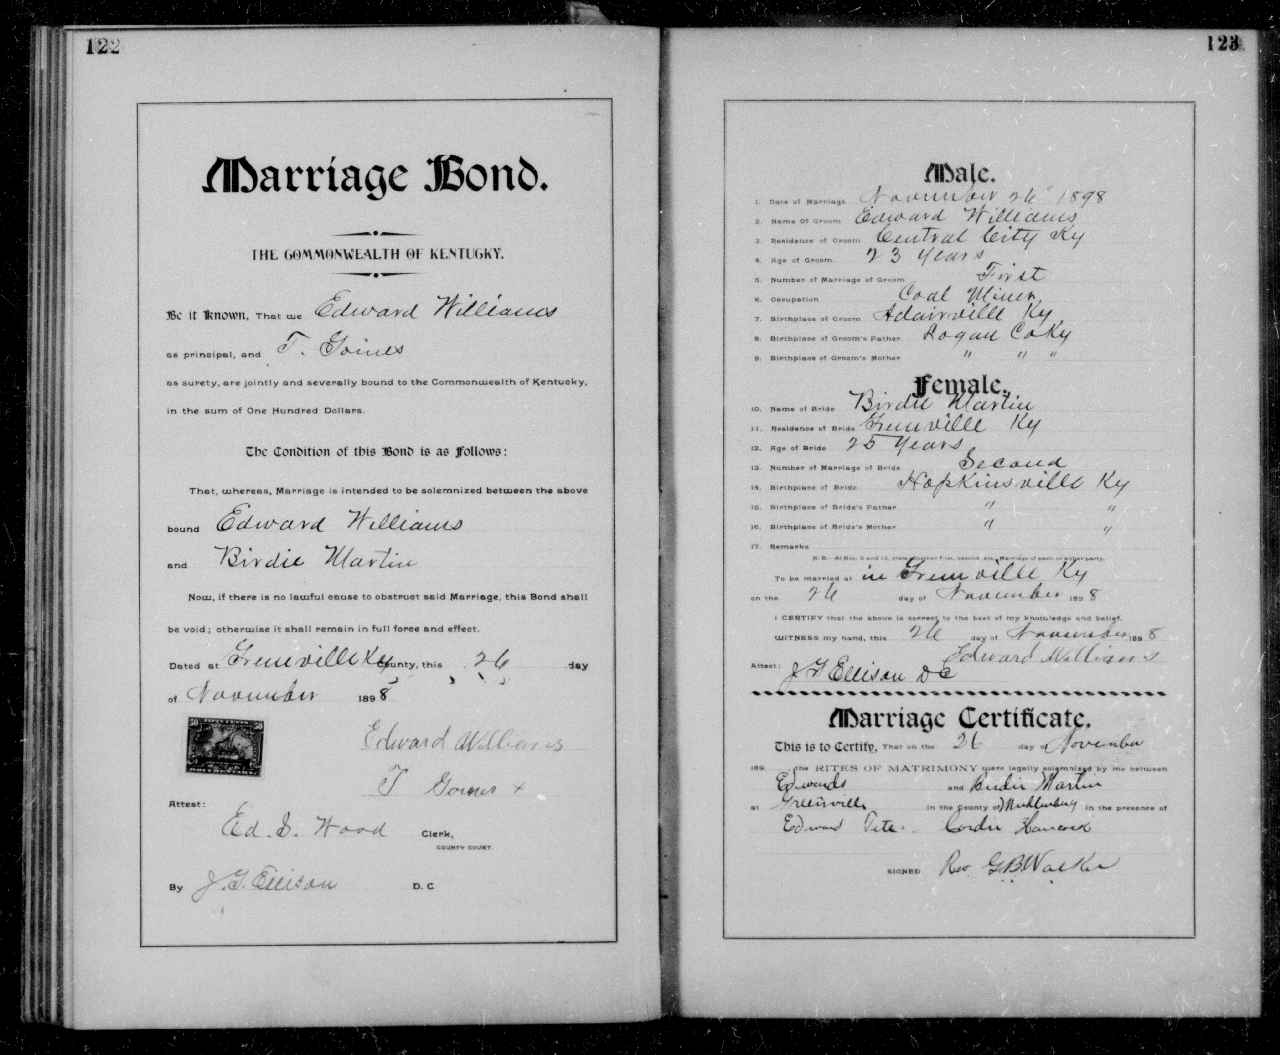 122
Marriage Bond.
THE COMMONWEALTH OF KENTUCKY.
Be it Known, That we Edward Williams
as principal, and T. Goines
as surety, are jointly and severally bound to the Commonwealth of Kentucky,
in the sum of One Hundred Dollars.
The Condition of this Bond is as Follows:
That, whereas, Marriage is intended to be solemnized between the above
bound Edward Williams
and Birdie Martin
Now, if there is no lawful cause to obstruct said Marriage, this Bond shall
be void; otherwise it shall remain in full force and effect.
Dated at Greenville Ky County, this 26 day
of November 1898
50 FIFTY CENTS 50
DOCUMENTARY
Edward Williams
T Goines x
Attest:
Ed. S. Wood Clerk,
COUNTY COURT.
By J. G. Ellison D. C
123
Male.
1. Date of Marriage November 26" 1898
2. Name Of Groom Edward Williams
3. Residence of Groom Central City Ky
4. Age of Groom 23 Years
5. Number of Marriage of Groom First
6. Occupation Coal Miner
7. Birthplace of Groom Adairville Ky
8. Birthplace of Groom's Father Logan Co Ky
9. Birthplace of Groom's Mother " " "
Female.
10. Name of Bride Birdie Martin
11. Residence of Bride Greenville Ky
12. Age of Bride 25 Years
13. Number of Marriage of Bride Second
14. Birthplace of Bride Hopkinsville Ky
15. Birthplace of Bride's Father " "
16. Birthplace of Bride's Mother " "
17. Remarks
N. B.—At Nos. 5 and 13, state whether first, second, etc., Marriage of each or either party.
To be married at in Greenville Ky
on the 26 day of November 1898
I CERTIFY that the above is correct to the best of my knowledge and belief.
WITNESS my hand, this 26 day of November 1898
Edward Williams
Attest: J G Ellison D C
Marriage Certificate.
This is to Certify, That on the 26 day of November
189 , the RITES OF MATRIMONY were legally solemnized by me between
Edwards and Birdie Martin
at Greenville in the County of Muhlenberg in the presence of
Edward Tate. Cordie Hancock
SIGNED Rev. G. B. Walker